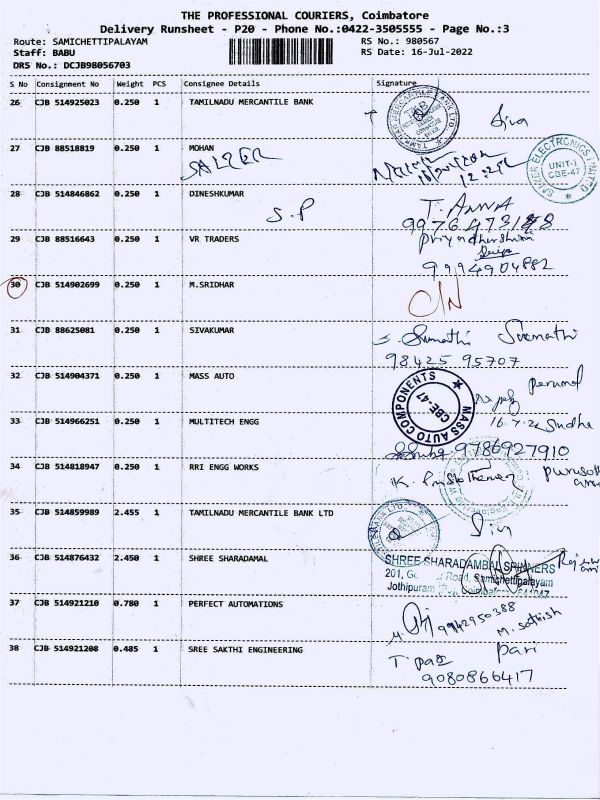 THE PROFESSIONAL COURIERS, Coimbatore
Delivery Runsheet - P20 - Phone No.:0422-3505555 - Page No.:3
Route: SAMICHETTIPALAYAM RS No.: 980567
Staff: BABU RS Date: 16-Jul-2022
DRS No.: DCJB98056703
S No Consignment No Weight PCS Consignee Details Signature
26 CJB 514925023 0.250 1 TAMILNADU MERCANTILE BANK
27 CJB 88518819 0.250 1 MOHAN
SALZER
SALZER ELECTRONICS LIMITED
UNIT-I
CBE-47
28 CJB 514846862 0.250 1 DINESHKUMAR
S.P
T. ANNA
29 CJB 88516643 0.250 1 VR TRADERS
Priyadharshini
9994904882
30 CJB 514902699 0.250 1 M.SRIDHAR
C/N
31 CJB 88625081 0.250 1 SIVAKUMAR
S. Sumathi
98425 95707
32 CJB 514904371 0.250 1 MASS AUTO
MASS AUTO COMPONENTS
CBE-47
perumal
33 CJB 514966251 0.250 1 MULTITECH ENGG
16.7.22 Sudha
9786927910
34 CJB 514818947 0.250 1 RRI ENGG WORKS
35 CJB 514859989 2.455 1 TAMILNADU MERCANTILE BANK LTD
36 CJB 514876432 2.450 1 SHREE SHARADAMAL
SHREE SHARADAMBAL SPINNERS
Road, Samichettipalayam
Jothipuram Coimbatore 641047
37 CJB 514921210 0.780 1 PERFECT AUTOMATIONS
9942950388
M. Sathish
38 CJB 514921208 0.485 1 SREE SAKTHI ENGINEERING
T. pari pari
9080866417